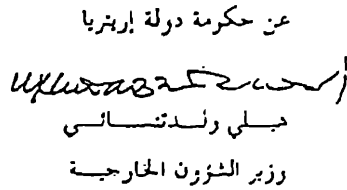 عن حكومة دولة إريتريا
هيلي ولدتنسائي
وزير الشؤون الخارجية